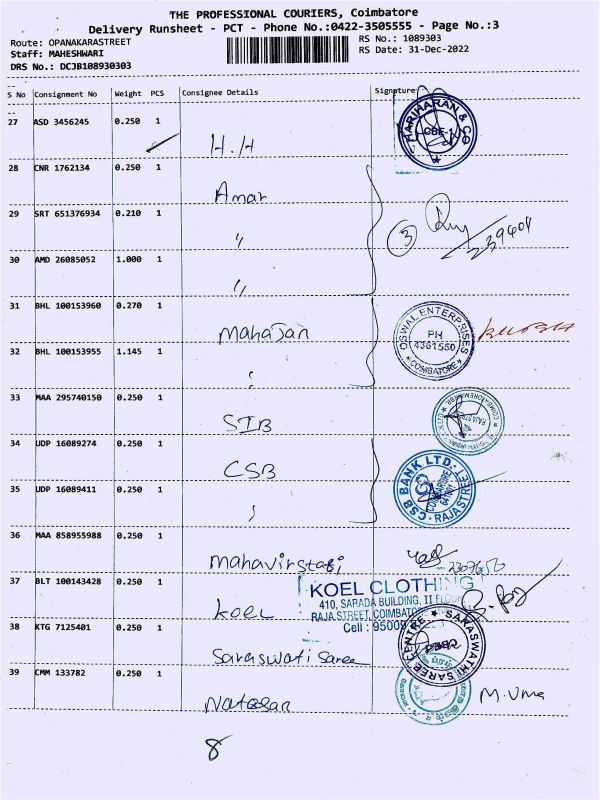 THE PROFESSIONAL COURIERS, Coimbatore
Delivery Runsheet - PCT - Phone No.:0422-3505555 - Page No.:3
Route: OPANAKARASTREET
Staff: MAHESHWARI
DRS No.: DCJB108930303
RS No.: 1089303
RS Date: 31-Dec-2022
S No Consignment No Weight PCS Consignee Details Signature
27 ASD 3456245 0.250 1
H.H
HARIHARAN & CO
CBE-1
28 CNR 1762134 0.250 1
Amar
29 SRT 651376934 0.210 1
"
3
239404
30 AMD 26085052 1.000 1
"
31 BHL 100153960 0.270 1
Mahajan
OSWAL ENTERPRISES
PH
4381550
COIMBATORE
32 BHL 100153955 1.145 1
33 MAA 295740150 0.250 1
STB
34 UDP 16089274 0.250 1
CSB
CSB BANK LTD.
COIMBATORE
641001
RAJA STREET
35 UDP 16089411 0.250 1
36 MAA 858955988 0.250 1
37 BLT 100143428 0.250 1
KOEL CLOTHING
410, SARADA BUILDING, II FLOOR
RAJA STREET, COIMBATORE
Cell : 95009
koel
38 KTG 7125401 0.250 1
SARASWATHI SAREE CENTRE
Saraswati Saree
39 CMM 133782 0.250 1
Natesan
M. Uma
8